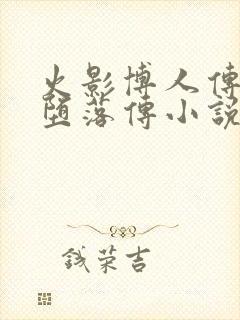 火影博人傳
墮落傳小說
錢荣吉